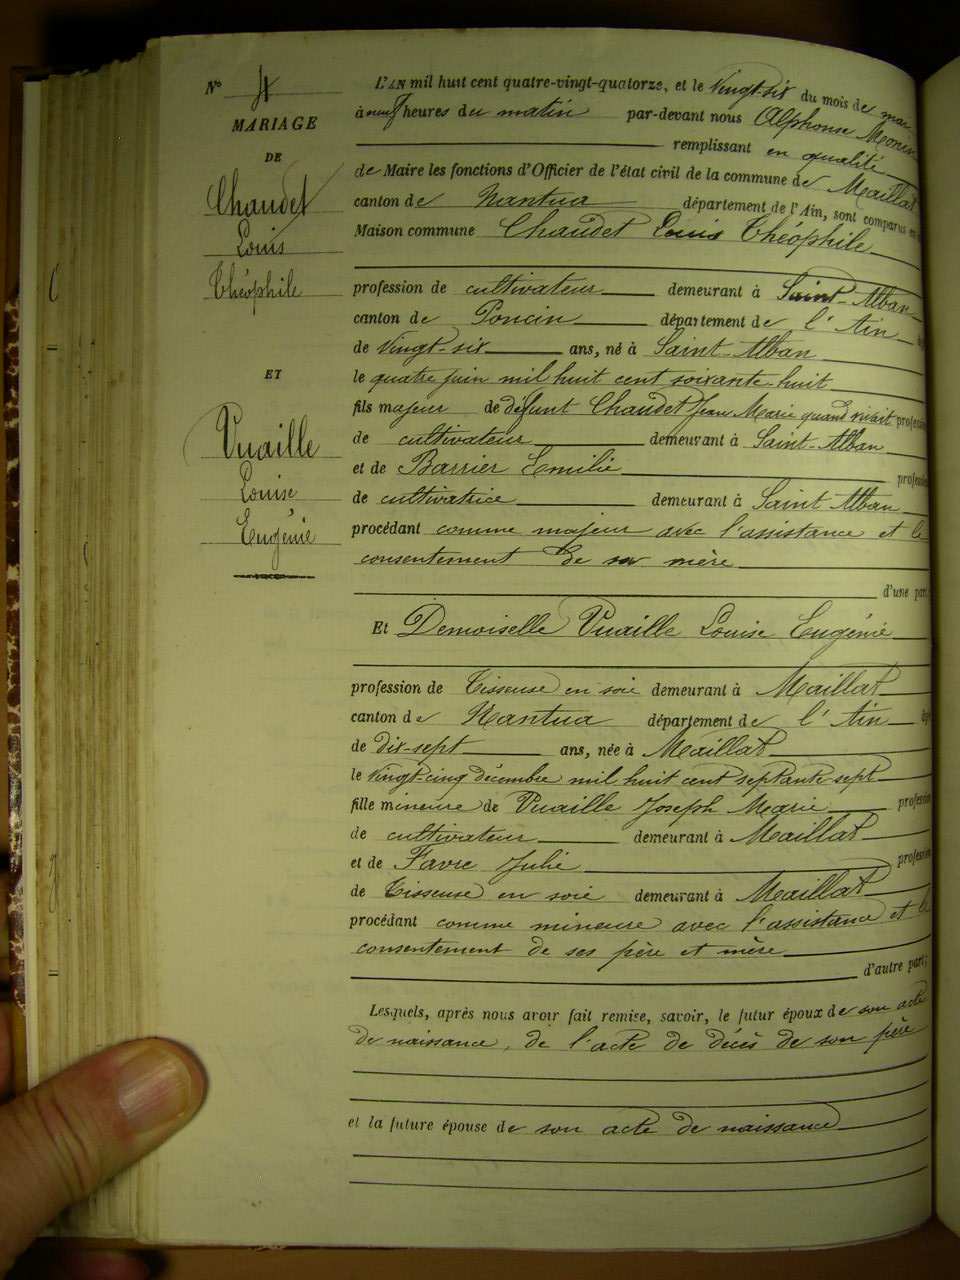 Nº 4
MARIAGE
DE
Chaudet
Louis
Théophile
ET
Vuaille
Louise
Eugénie
L'AN mil huit cent quatre-vingt-quatorze, et le Vingt-six du mois de mai
à neuf heures du matin par-devant nous Alphonse
remplissant en qualité
de Maire les fonctions d'Officier de l'état civil de la commune de Maillat
canton de Nantua département de l'Ain, sont comparus en la
Maison commune Chaudet Louis Théophile
profession de cultivateur demeurant à Saint-Alban
canton de Poncin département de l'Ain
de Vingt-six ans, né à Saint-Alban
le quatre juin mil huit cent soixante-huit
fils majeur de défunt Chaudet Jean Marie quand vivait profession
de cultivateur demeurant à Saint-Alban
et de Barrier Emilie profession
de cultivatrice demeurant à Saint Alban
procédant comme majeur avec l'assistance et le
consentement de sa mère
d'une part,
Et Demoiselle Vuaille Louise Eugénie
profession de Tisseuse en soie demeurant à Maillat
canton de Nantua département de l'Ain
de dix-sept ans, née à Maillat
le vingt-cinq décembre mil huit cent septante-sept
fille mineure de Vuaille Joseph Marie profession
de cultivateur demeurant à Maillat
et de Favre Julie profession
de Tisseuse en soie demeurant à Maillat
procédant comme mineure avec l'assistance et le
consentement de ses père et mère
d'autre part;
Lesquels, après nous avoir fait remise, savoir, le futur époux de son acte
de naissance, de l'acte de décès de son père
et la future épouse de son acte de naissance